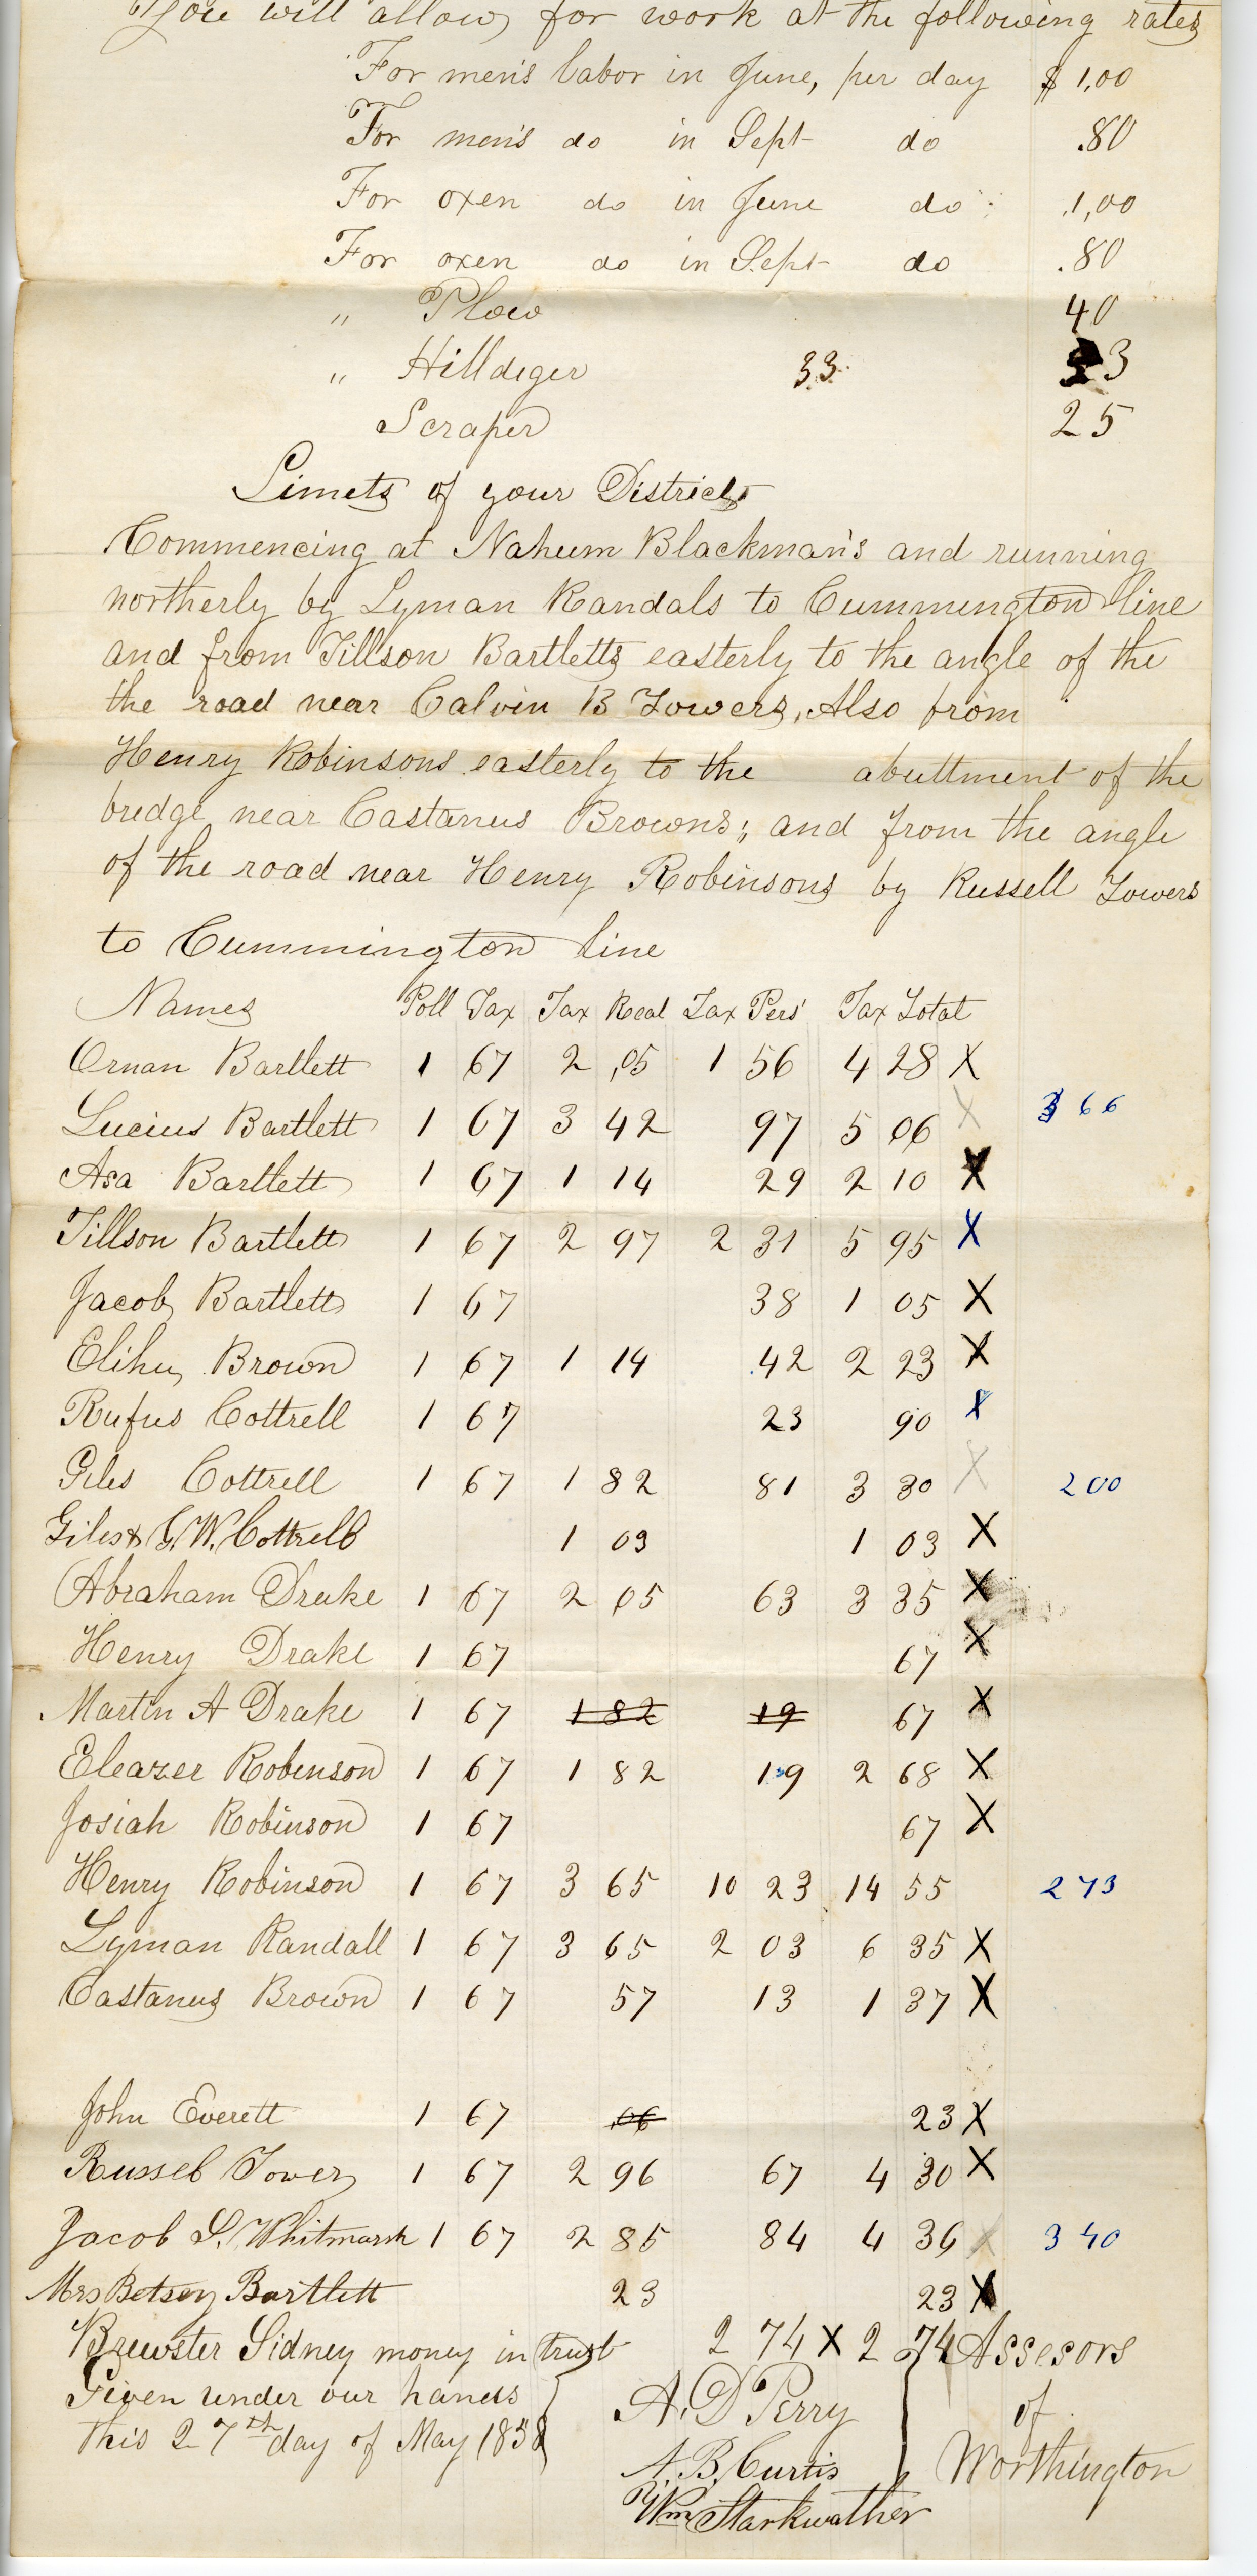 You will allow for work at the following rates
For men's labor in June, per day $ 1,00
For men's do in Sept do .80
For oxen do in June do 1,00
For oxen do in Sept do .80
" Plow 40
" Hilldiger 33 33
Scraper 25
Limets of your District
Commencing at Nahum Blackman's and running
northerly by Lyman Randals to Cummington line
and from Tillson Bartletts easterly to the angle of the
the road near Calvin B Towers, Also from
Henry Robinsons easterly to the abuttment of the
bridge near Castanus Browns; and from the angle
of the road near Henry Robinsons by Russell Towers
to Cummington line
Names Poll Tax Tax Real Tax Pers' Tax Total
Ornan Bartlett 1 67 2 ,05 1 56 4 28 X
Lucius Bartlett 1 67 3 42 97 5 06 X 3 66
Asa Bartlett 1 67 1 14 29 2 10 X
Tillson Bartlett 1 67 2 97 2 31 5 95 X
Jacob Bartlett 1 67 38 1 05 X
Elihu Brown 1 67 1 14 .42 2 23 X
Rufus Cottrell 1 67 23 90 X
Giles Cottrell 1 67 1 82 81 3 30 X 2 00
Giles & G. W. Cottrell 1 03 1 03 X
Abraham Drake 1 67 2 05 63 3 35 X
Henry Drake 1 67 67 X
Martin A Drake 1 67 1 82 19 67 X
Eleazer Robinson 1 67 1 82 19 2 68 X
Josiah Robinson 1 67 67 X
Henry Robinson 1 67 3 65 10 23 14 55 2 73
Lyman Randall 1 67 3 65 2 03 6 35 X
Castanus Brown 1 67 57 13 1 37 X
John Everett 1 67 06 23 X
Russel Tower 1 67 2 96 67 4 30 X
Jacob S. Whitmarsh 1 67 2 85 84 4 36 X 3 40
Mrs Betsey Bartlett 23 23 X
Brewster Sidney money in trust 2 74 X 2 74 Assesors
Given under our hands A. D Perry of
this 27th day of May 1858 A. B. Curtis Worthington
Wm Starkwather